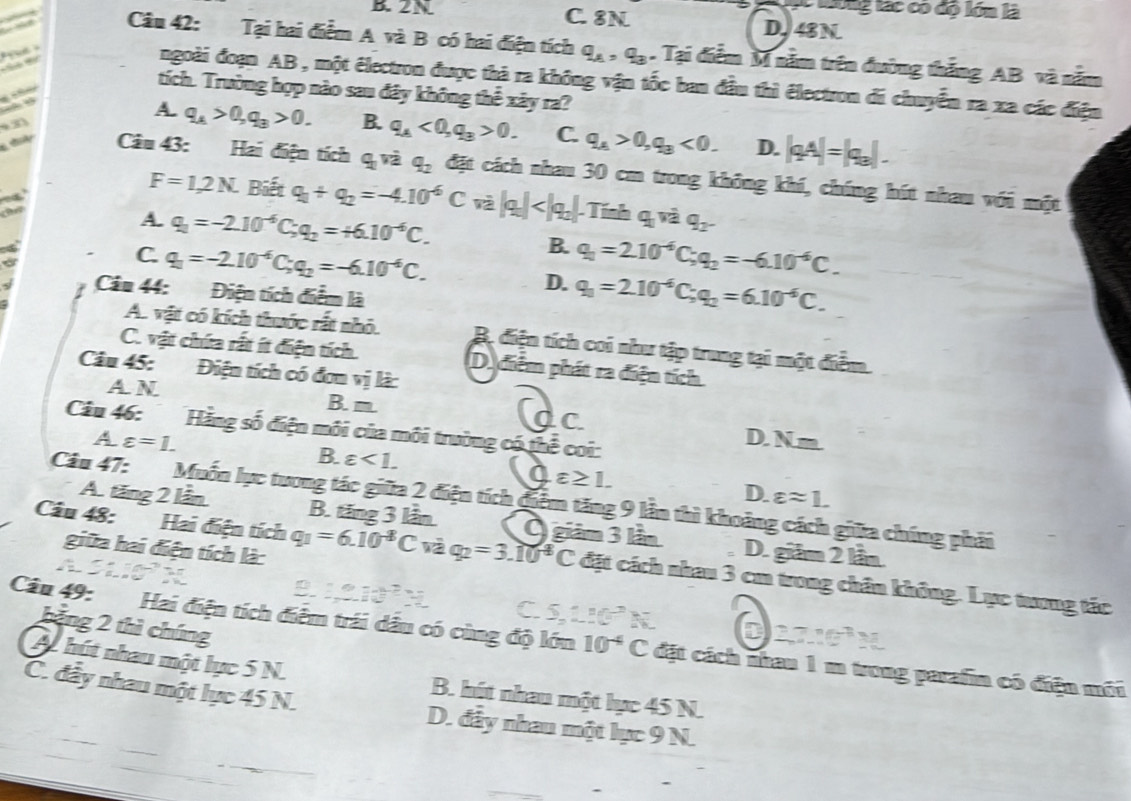 B. 2N. C. 8N. D. 48N.
tác có độ lớm là
Câu 42: Tại hai điểm A và B có hai điện tích q_A, q_B. Tại điểm M nằm trên đường thẳng AB và nằm
ngoài đoạn AB, một êlectron được thả ra không vận tốc ban đầu thì êlectron di chuyển ra xa các điện
tích. Trường hợp nào sau đây không thể xảy ra?
A. q_A > 0, q_B > 0. B. q_A < 0, q_B > 0. C. q_A > 0, q_B < 0. D. |qA| = |q_B|.
Câu 43: Hai điện tích q₁ và q₂ đặt cách nhau 30 cm trong không khí, chúng hút nhau với một
F = 1,2 N. Biết q₁ + q₂ = -4.10⁻⁶ C và |q₁| < |q₂|. Tính q₁ và q₂.
A. q₁ = -2.10⁻⁶C; q₂ = +6.10⁻⁶C. B. q₁ = 2.10⁻⁶C; q₂ = -6.10⁻⁶C.
C. q₁ = -2.10⁻⁶C; q₂ = -6.10⁻⁶C. D. q₁ = 2.10⁻⁶C; q₂ = 6.10⁻⁶C.
Câu 44: Điện tích điểm là
A. vật có kích thước rất nhỏ. B. điện tích coi như tập trung tại một điểm.
C. vật chứa rất ít điện tích. D. điểm phát ra điện tích.
Câu 45: Điện tích có đơn vị là:
A. N. B. m. C. C. D. N.m.
Câu 46: Hằng số điện môi của môi trường có thể coi:
A. ε = 1. B. ε < 1. C. ε ≥ 1. D. ε ≈ 1.
Câu 47: Muốn lực tương tác giữa 2 điện tích điểm tăng 9 lần thì khoảng cách giữa chúng phải
A. tăng 2 lần. B. tăng 3 lần. C. giảm 3 lần. D. giảm 2 lần.
Câu 48: Hai điện tích q₁ = 6.10⁻⁸C và q₂ = 3.10⁻⁸C đặt cách nhau 3 cm trong chân không. Lực tương tác
giữa hai điện tích là:
Câu 49: Hai điện tích điểm trái dấu có cùng độ lớn 10⁻⁴ C đặt cách nhau 1 m trong parafin có điện môi
bằng 2 thì chúng
A. hút nhau một lực 5 N. B. hút nhau một lực 45 N.
C. đẩy nhau một lực 45 N. D. đẩy nhau một lực 9 N.